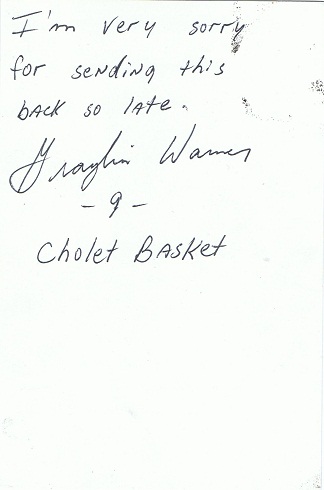 I'm very sorry
for sending this
back so late.
Graylin Warner
- 9 -
Cholet Basket